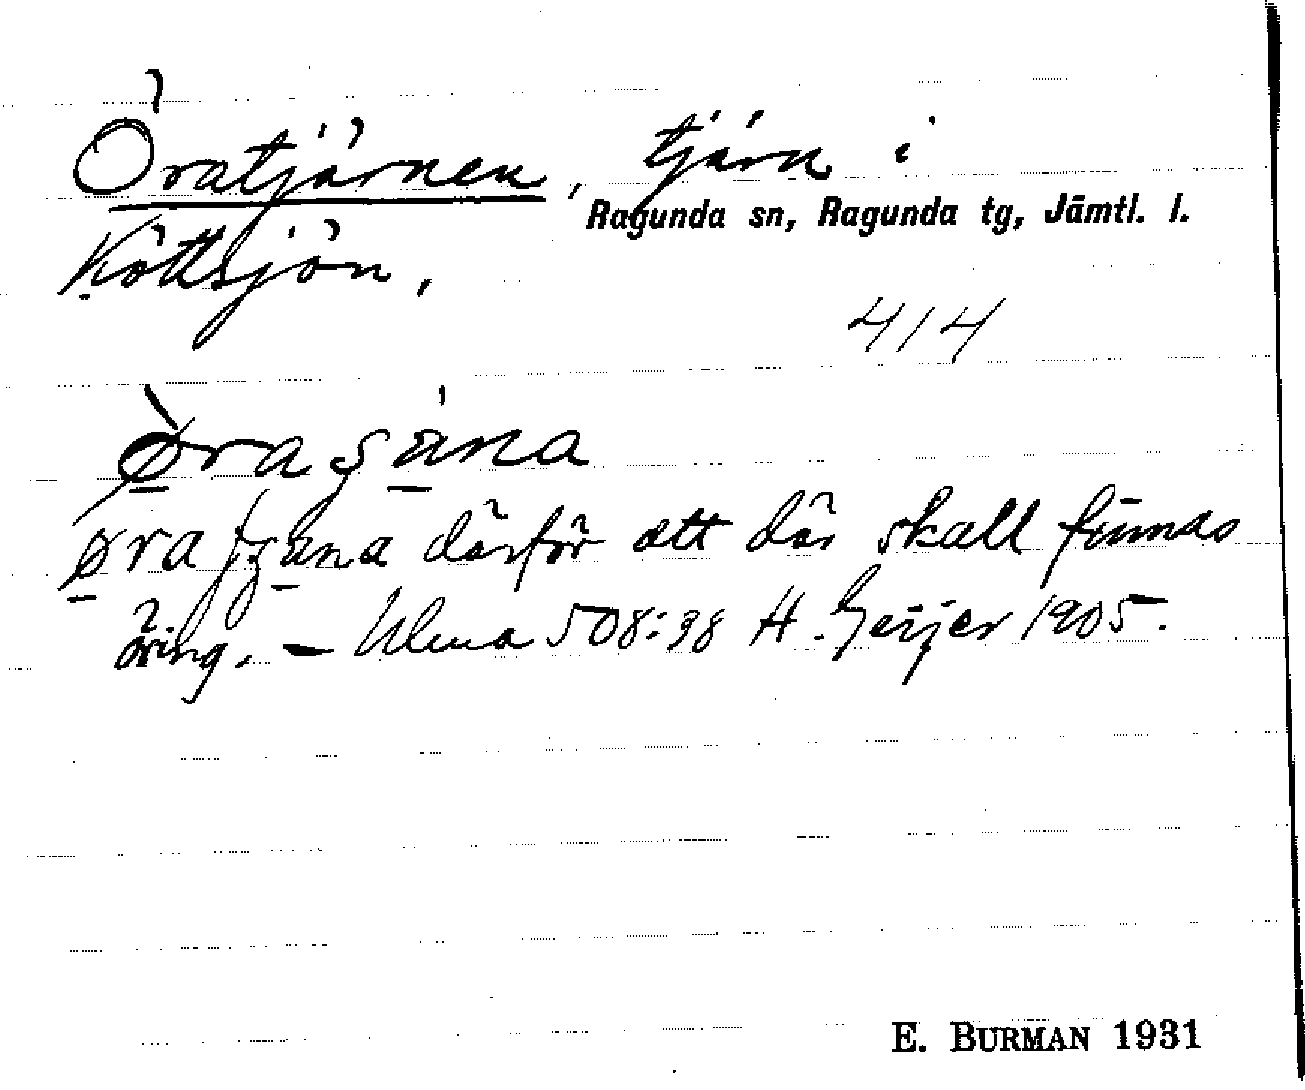 Öratjärnen, tjärn i
Ragunda sn, Ragunda tg, Jämtl. l.
Köttsjön.
414
därför att där skall finnas
öring. – Ulma 508:98 H. Geijer 1905.
E. BURMAN 1931